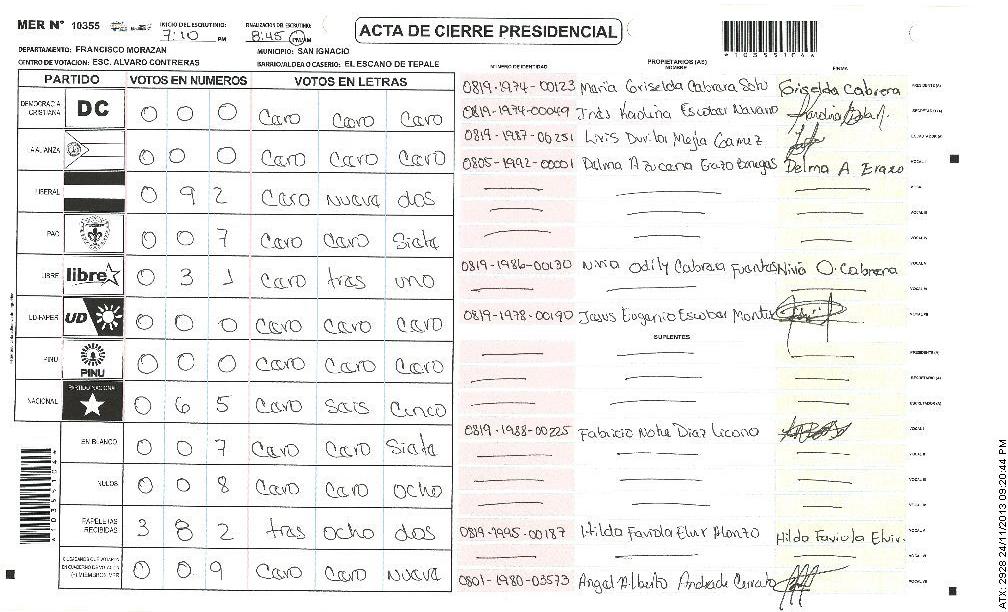 MER N° 10355
INICIO DEL ESCRUTINIO: 7:10 PM
FINALIZACION DEL ESCRUTINIO: 8:45 PM/AM
ACTA DE CIERRE PRESIDENCIAL
A10355104A
DEPARTAMENTO: FRANCISCO MORAZAN
MUNICIPIO: SAN IGNACIO
CENTRO DE VOTACION: ESC. ALVARO CONTRERAS
BARRIO/ALDEA O CASERIO: EL ESCANO DE TEPALE
PARTIDO VOTOS EN NUMEROS VOTOS EN LETRAS
DEMOCRACIA CRISTIANA DC 0 0 0 Cero Cero Cero
ALIANZA 0 0 0 Cero Cero Cero
LIBERAL 0 9 2 Cero nueve dos
PAC 0 0 7 Cero Cero Siete
LIBRE libre 0 3 1 Cero tres uno
UD-FAPER UD 0 0 0 Cero Cero Cero
PINU PINU 0 0 0 Cero Cero Cero
NACIONAL PARTIDO NACIONAL 0 6 5 Cero seis Cinco
EN BLANCO 0 0 7 Cero Cero Siete
NULOS 0 0 8 Cero Cero ocho
PAPELETAS RECIBIDAS 3 8 2 tres ocho dos
0 0 9 Cero Cero Nueve
NUMERO DE IDENTIDAD PROPIETARIOS (AS) NOMBRE FIRMA
0819-1974-00123 Maria Griselda Cabrera Soto Griselda Cabrera PRESIDENTE(A)
0819-1974-00049 Inés Karolina Escobar Navarro SECRETARIO(A)
0819-1987-00251 Livis Durila Mejia Gamez ESCRUTADOR(A)
0805-1992-00001 Delma Azucena Erazo Banegas Delma A. Erazo VOCAL I
VOCAL III
VOCAL IV
0819-1986-00130 Nivia Odily Cabrera Fuentes Nivia O. Cabrera VOCAL V
0819-1978-00190 Jesus Eugenio Escobar VOCAL VII
SUPLENTES
PRESIDENTE(A)
SECRETARIO(A)
ESCRUTADOR(A)
0819-1988-00225 Fabricio Diaz VOCAL I
VOCAL II
VOCAL III
VOCAL IV
0819-1995-00187 Hilda Faviola Elvir Alonzo Hilda Faviola Elvir. VOCAL V
0801-1980-03573 Angel Alberto Andrade Cerrato VOCAL VII
ATX-2928 24/11/2013 09:20:44 PM